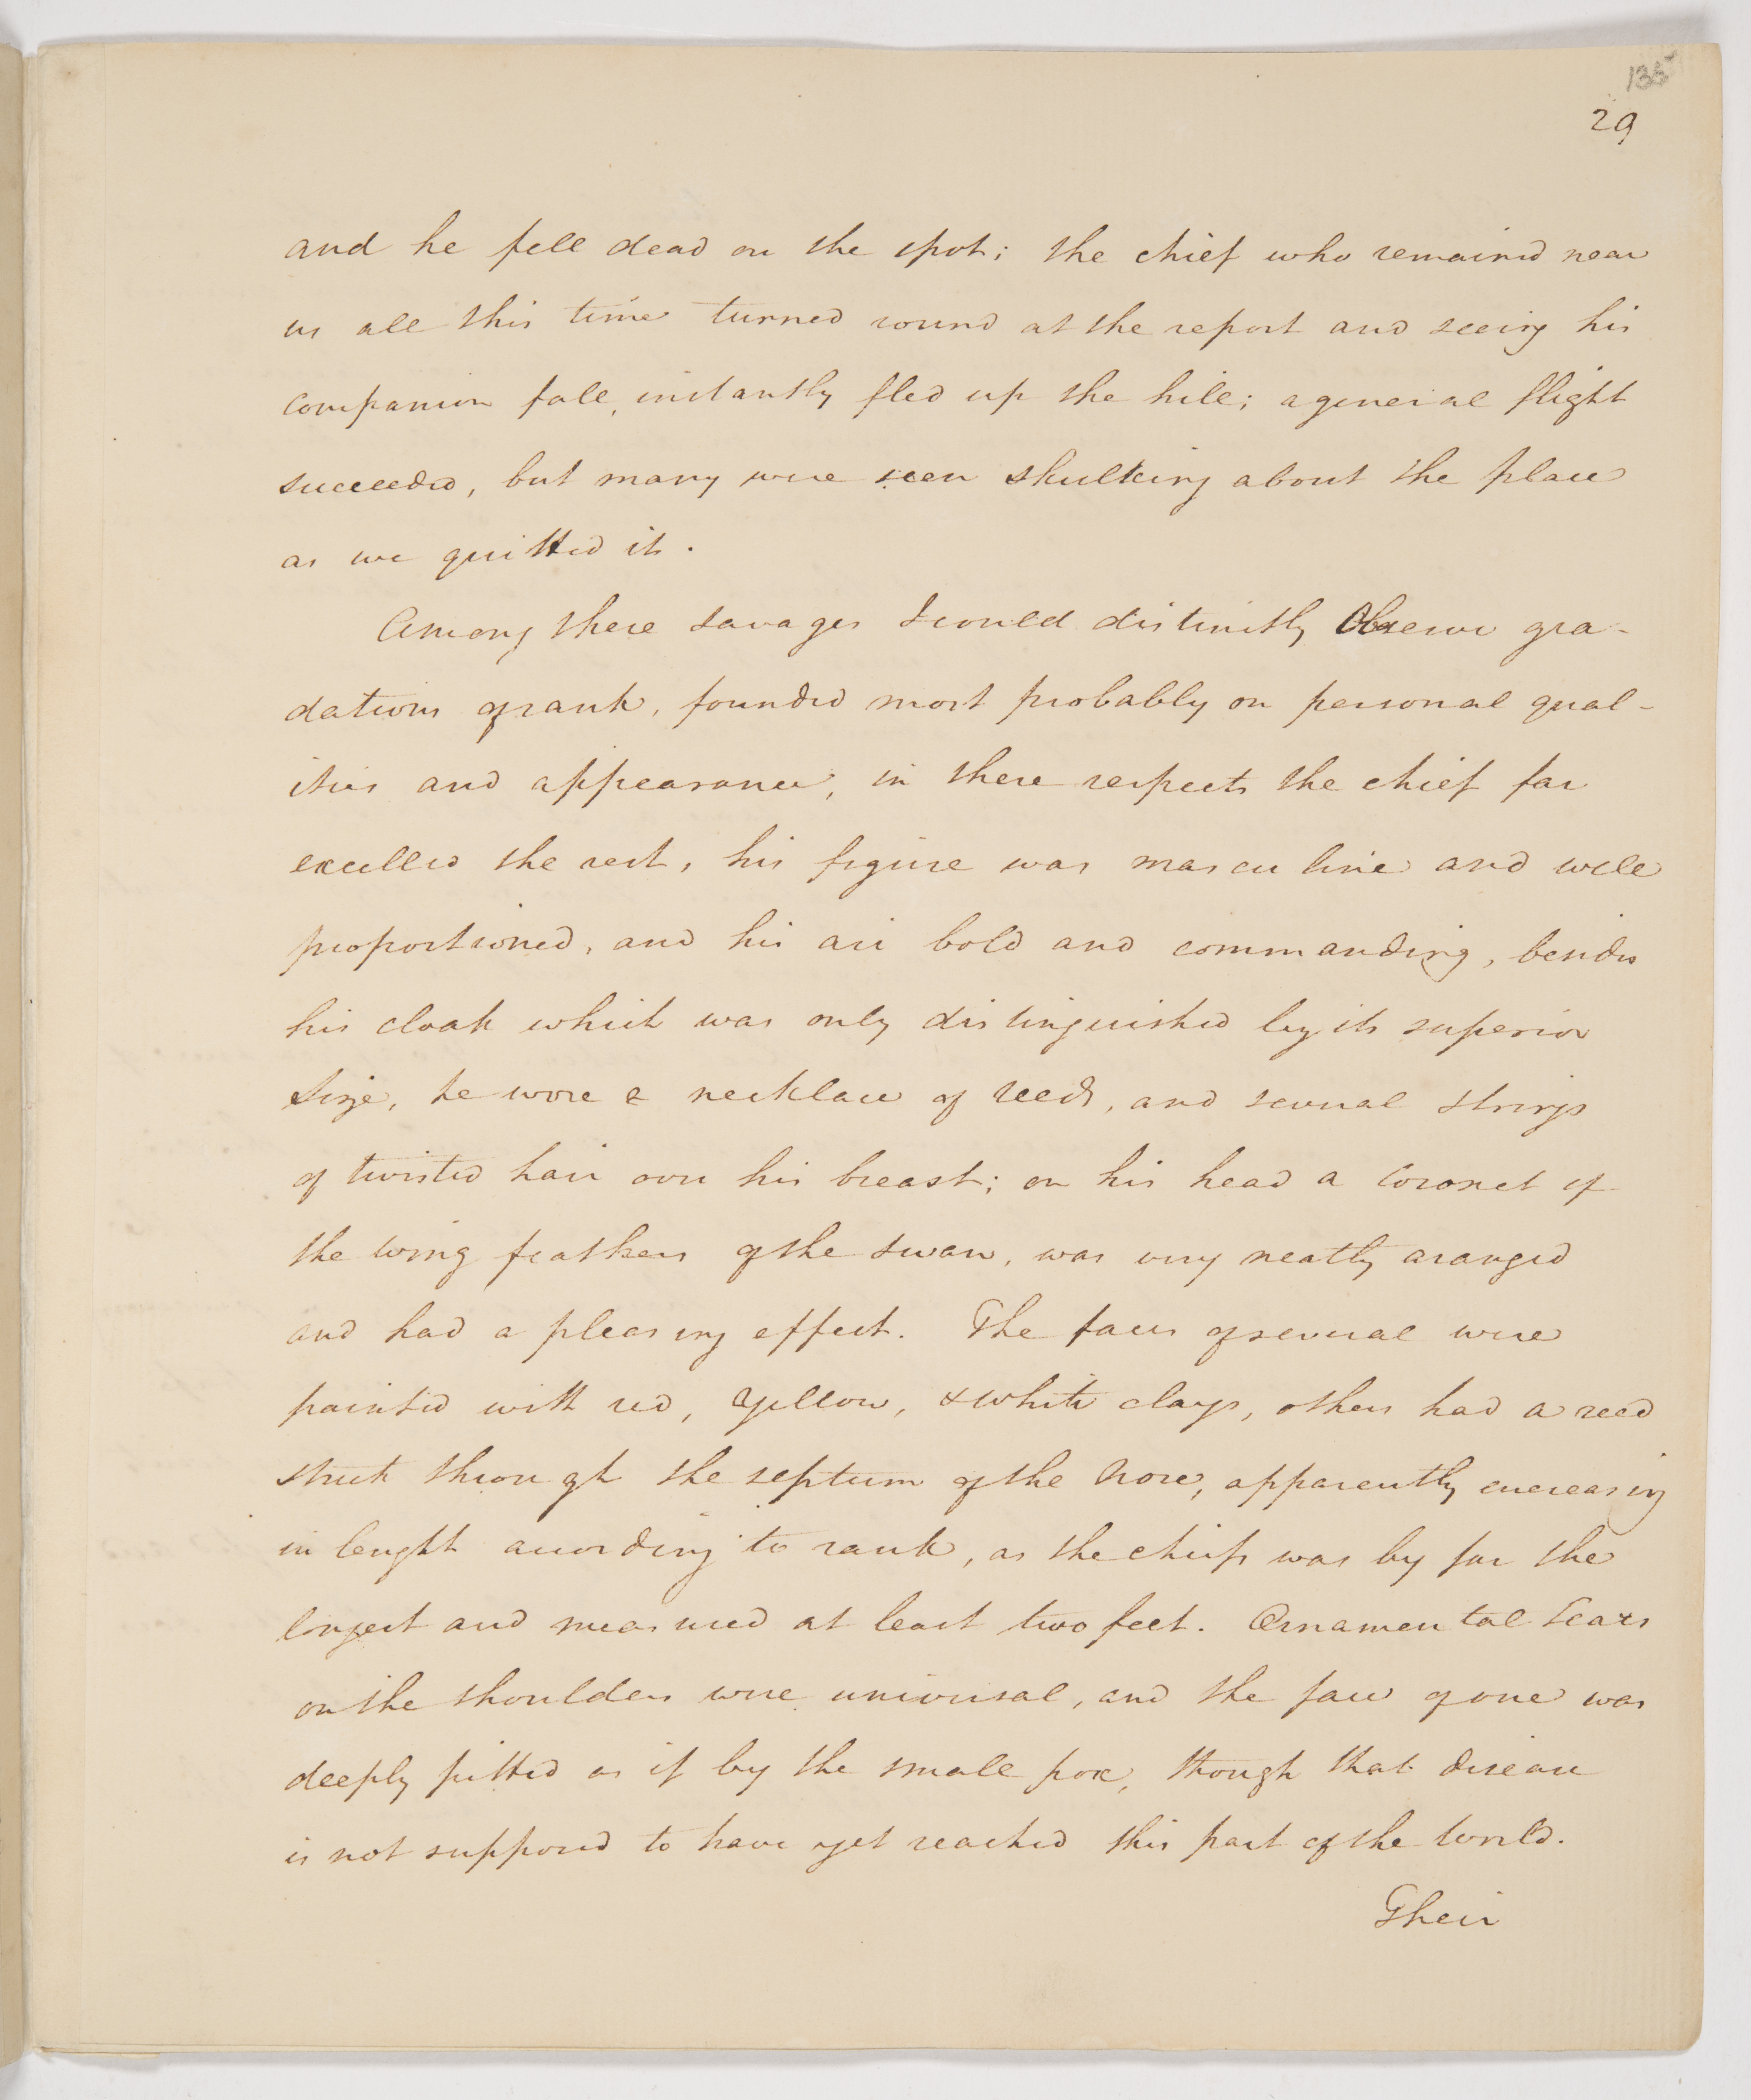 135
29
and he fell dead on the spot; the chief who remained near
us all this time turned round at the report and seeing his
companion fall, instantly fled up the hill; a general flight
succeeded, but many were seen skulking about the place
as we quitted it.
Among these savages I could distinctly Observe gra-
dations of rank, founded most probably on personal qual-
ities and appearance, in these respects the chief far
excelled the rest, his figure was masculine and well
proportioned, and his air bold and commanding, besides
his cloak which was only distinguished by its superior
size, he wore a necklace of reeds, and several strings
of twisted hair over his breast; on his head a Coronet of
the wing feathers of the swan, was very neatly aranged
and had a pleasing effect. The faces of several were
painted with red, yellow, & white clays, others had a reed
stuck through the septum of the Nose, apparently encreasing
in lenght according to rank, as the chiefs was by far the
longest and measured at least two feet. Ornamental Scars
on the shoulders were universal, and the face of one was
deeply pitted as if by the small pox, though that disease
is not supposed to have yet reached this part of the World.
Their